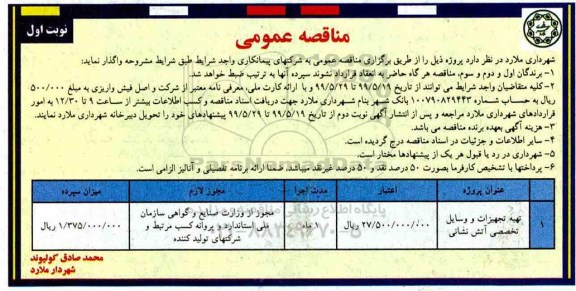 نوبت اول
مناقصه عمومی
شهرداری ملارد در نظر دارد پروژه ذیل را از طریق برگزاری مناقصه عمومی به شرکتهای پیمانکاری واجد شرایط طبق شرایط مشروحه واگذار نماید:
۱- برندگان اول و دوم و سوم، مناقصه هر گاه حاضر به انعقاد قرارداد نشوند سپرده آنها به ترتیب ضبط خواهد شد.
۲- کلیه متقاضیان واجد شرایط می توانند از تاریخ ۹۹/۵/۱۹ تا ۹۹/۵/۲۹ و با ارائه کارت ملی، معرفی نامه معتبر از شرکت و اصل فیش واریزی به مبلغ ۵۰۰/۰۰۰
ریال به حساب شماره ۱۰۰۷۹۰۸۲۹۴۴۳ بانک شهر بنام شهرداری ملارد جهت دریافت اسناد مناقصه و کسب اطلاعات بیشتر از ساعت ۹ تا ۱۲/۳۰ به امور
قراردادهای شهرداری ملارد مراجعه و پس از انتشار آگهی نوبت دوم از تاریخ ۹۹/۵/۱۹ تا ۹۹/۵/۲۹ پیشنهادهای خود را تحویل دبیرخانه شهرداری ملارد نمایند.
۳- هزینه آگهی بعهده برنده مناقصه می باشد.
۴- سایر اطلاعات و جزئیات در اسناد مناقصه درج گردیده است.
۵- شهرداری در رد یا قبول هر یک از پیشنهادها مختار است.
۶- پرداختها با تشخیص کارفرما بصورت ۵۰ درصد نقد و ۵۰ درصد غیرنقد میباشد، ضمنا ارائه برنامه تفصیلی و آنالیز الزامی است.
عنوان پروژه اعتبار مدت اجرا مجوز لازم میزان سپرده
۱ تهیه تجهیزات و وسایل تخصصی آتش نشانی ۲۷/۵۰۰/۰۰۰/۰۰۰ ریال ۱ ماه مجوز از وزارت صنایع و گواهی سازمان ملی استاندارد و پروانه کسب مرتبط و شرکتهای تولید کننده ۱/۳۷۵/۰۰۰/۰۰۰ ریال
محمد صادق کولیوند
شهردار ملارد